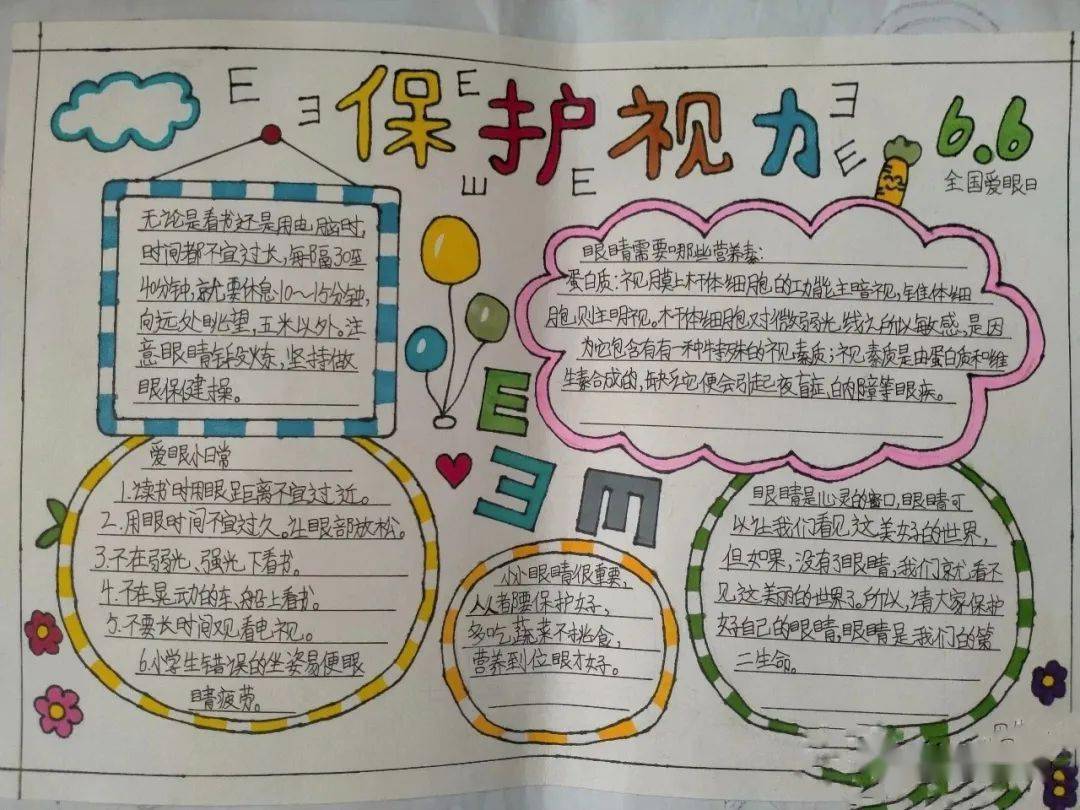 E
E
保护视力
E
E
E
E
E
6.6
全国爱眼日
无论是看书还是用电脑时,
时间都不宜过长,每隔30至
40分钟,就要休息10～15分钟,
向远处眺望,五米以外。注
意眼睛锻炼,坚持做
眼保健操。
眼睛需要哪些营养素:
蛋白质:视膜上杆体细胞的功能主暗视,锥体细
胞则主明视。杆体细胞对微弱光线之所以敏感,是因
为它包含有有一种特殊的视素质;视素质是由蛋白质和维
生素合成的,缺乏它便会引起夜盲症、白内障等眼疾。
E
E
E
爱眼小日常
1.读书时用眼距离不宜过近。
2.用眼时间不宜过久。让眼部放松。
3.不在弱光、强光下看书。
4.不在晃动的车、船上看书。
5.不要长时间观看电视。
6.小学生错误的坐姿易使眼
睛疲劳。
小小眼睛很重要,
人人都要保护好,
多吃蔬菜不挑食,
营养到位眼才好。
眼睛是心灵的窗口,眼睛可
以让我们看见这美好的世界,
但如果,没有了眼睛,我们就看不
见这美丽的世界了。所以,请大家保护
好自己的眼睛,眼睛是我们的第
二生命。